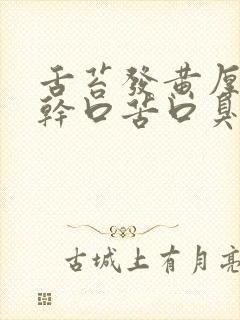 舌苔發黄厚
幹口苦口臭
古城上有月亮